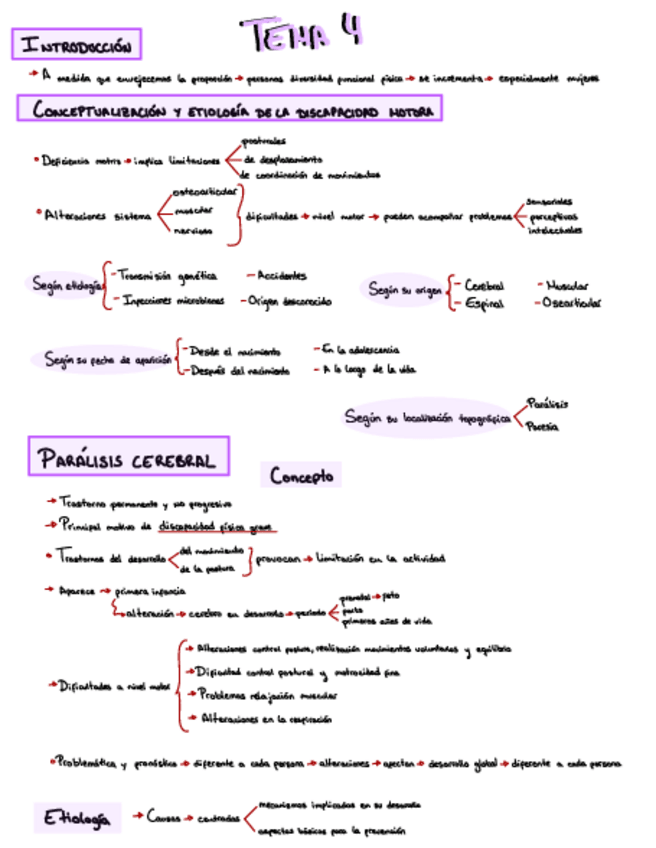 TEMA 4
INTRODUCCIÓN
→ A medida que envejecemos la proporción → personas diversidad funcional física → se incrementa → especialmente mujeres
CONCEPTUALIZACIÓN Y ETIOLOGÍA DE LA DISCAPACIDAD MOTORA
posturales
• Deficiencia motriz → implica limitaciones de desplazamiento
de coordinación de movimientos
osteoarticular
• Alteraciones sistema muscular dificultades → nivel motor → pueden acompañar problemas sensoriales
nervioso perceptivos
intelectuales
Según etiología - Transmisión genética - Accidentes
- Infecciones microbianas - Origen desconocido
Según su origen - Cerebral - Muscular
- Espinal - Oseoarticular
Según su fecha de aparición - Desde el nacimiento - En la adolescencia
- Después del nacimiento - A lo largo de la vida
Según su localización topográfica Parálisis
Paresia
PARÁLISIS CEREBRAL
Concepto
→ Trastorno permanente y no progresivo
→ Principal motivo de discapacidad física grave
• Trastornos del desarrollo del movimiento provocan → limitación en la actividad
de la postura
→ Aparece → primera infancia
alteración → cerebro en desarrollo → periodo prenatal → feto
parto
primeros años de vida
→ Dificultades a nivel motor
→ Alteraciones control postura, realización movimientos voluntarios y equilibrio
→ Dificultad control postural y motricidad fina
→ Problemas relajación muscular
→ Alteraciones en la respiración
• Problemática y pronóstico → diferente a cada persona → alteraciones → afectan → desarrollo global → diferente a cada persona
Etiología → Causas → centradas mecanismos implicados en su desarrollo
aspectos básicos para la prevención